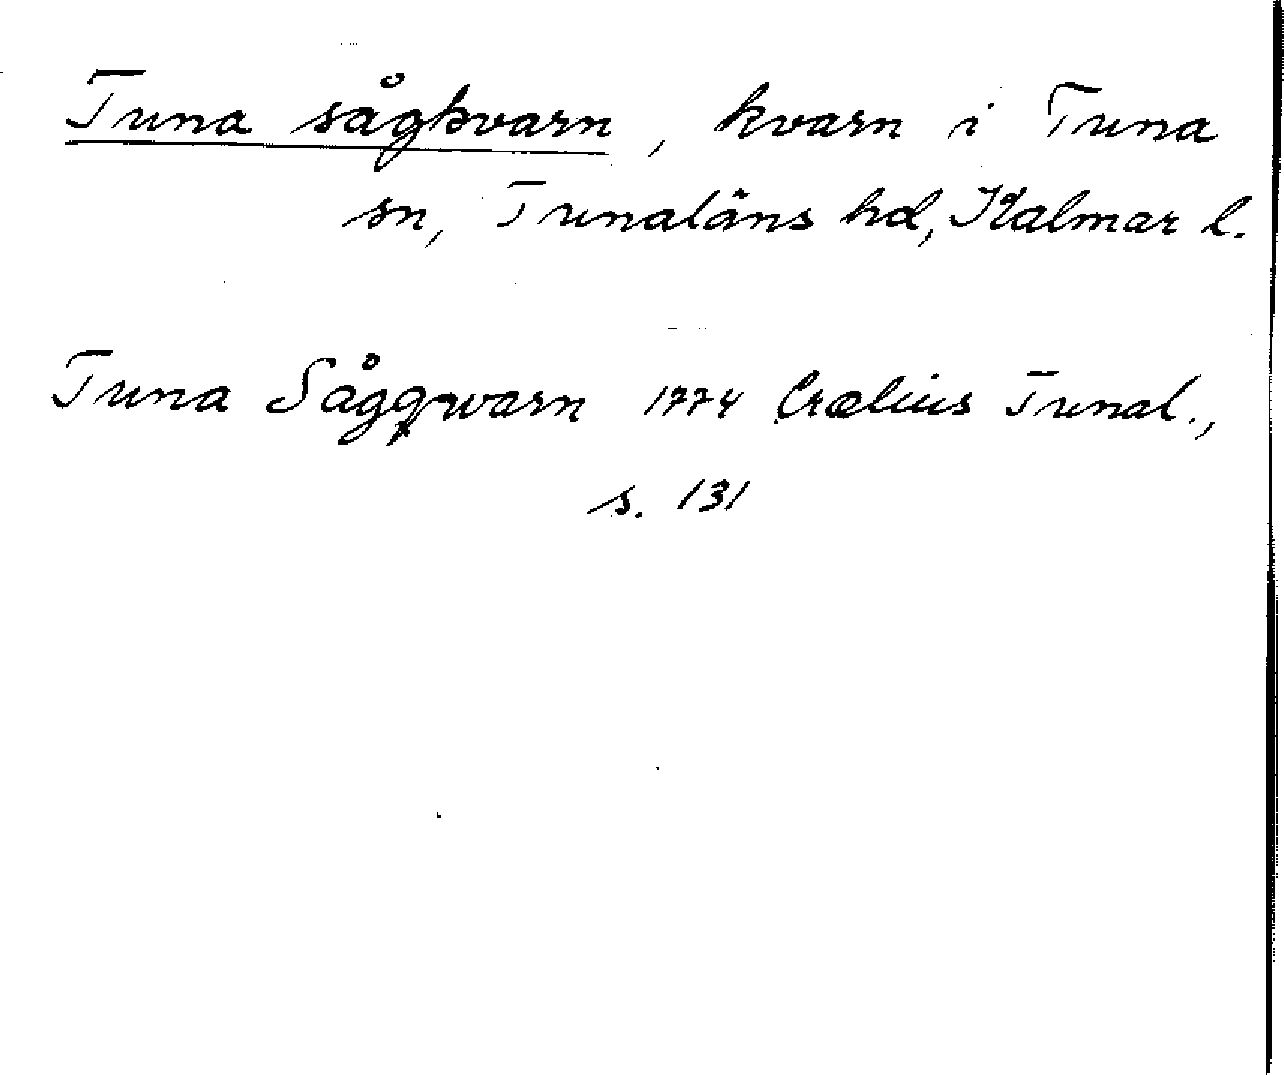 Tuna sågkvarn, kvarn i Tuna
sn, Tunaläns hd, Kalmar l.
Tuna Sågqwarn 1774 Crælius Tunal.,
s. 131